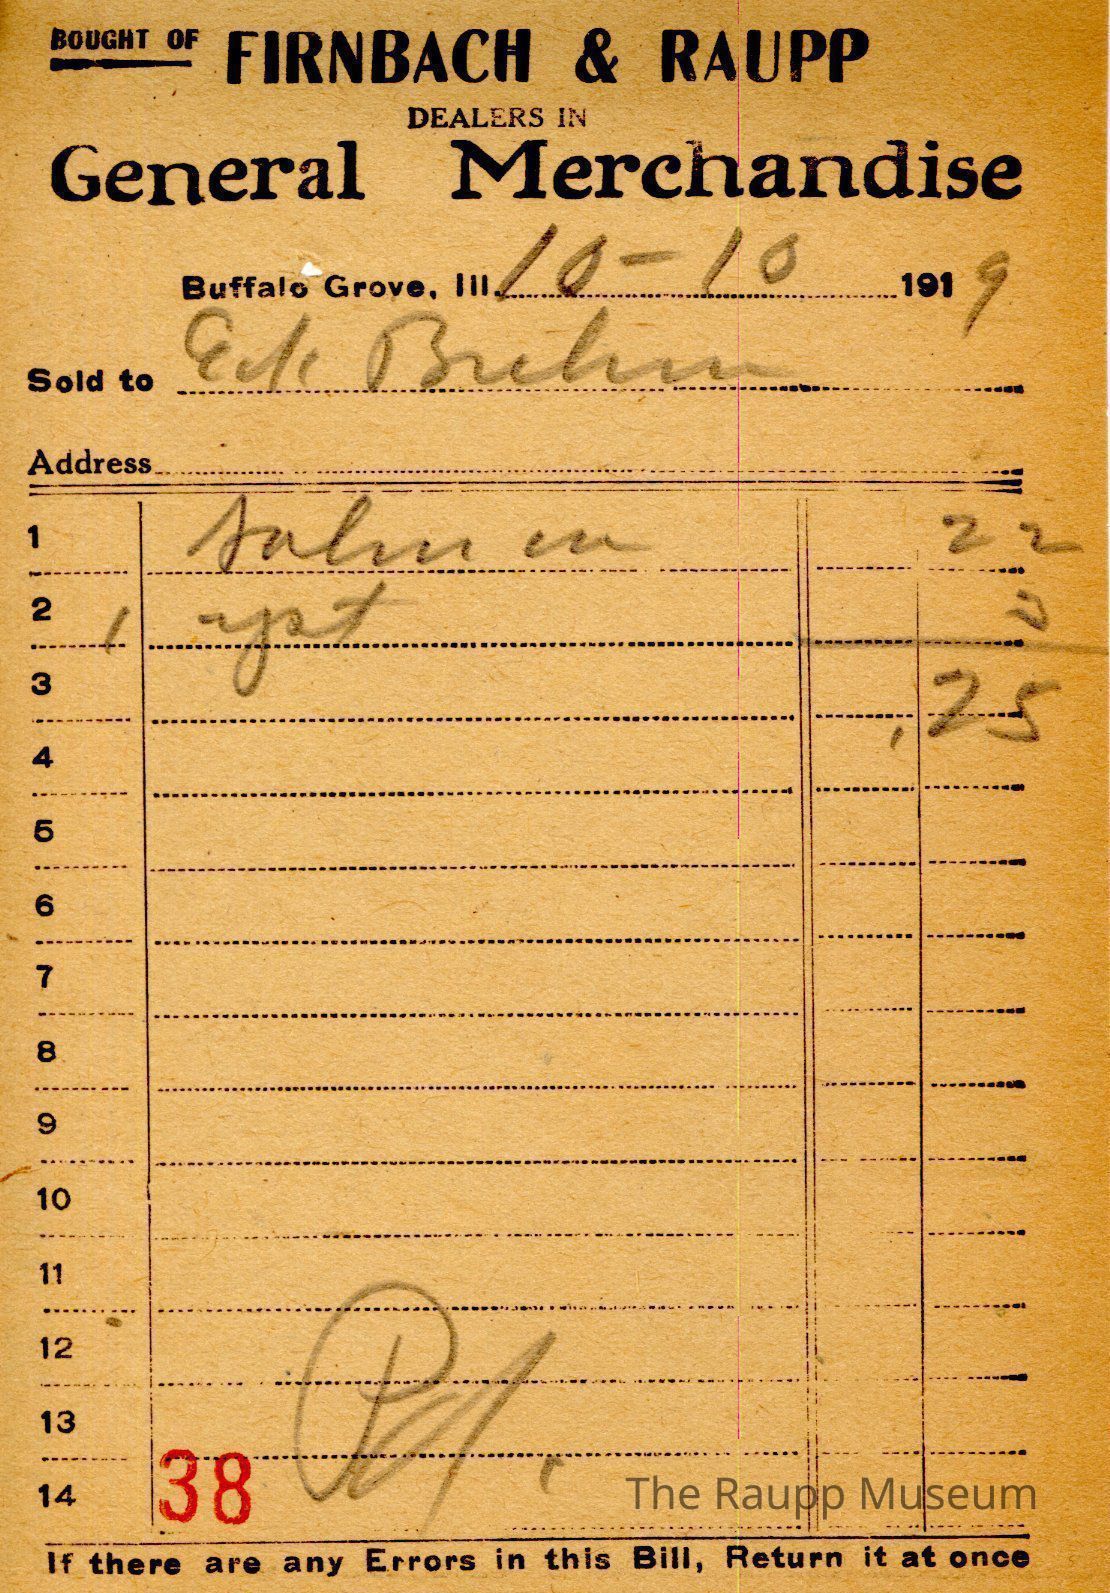 BOUGHT OF FIRNBACH & RAUPP
DEALERS IN
General Merchandise
Buffalo Grove, Ill. 10-10 1919
Sold to Ed Brehm
Address
1 Salmon 22
2 1 yst 3
3 .25
4
5
6
7
8
9
10
11
12
13 Pd.
14 38
The Raupp Museum
If there are any Errors in this Bill, Return it at once